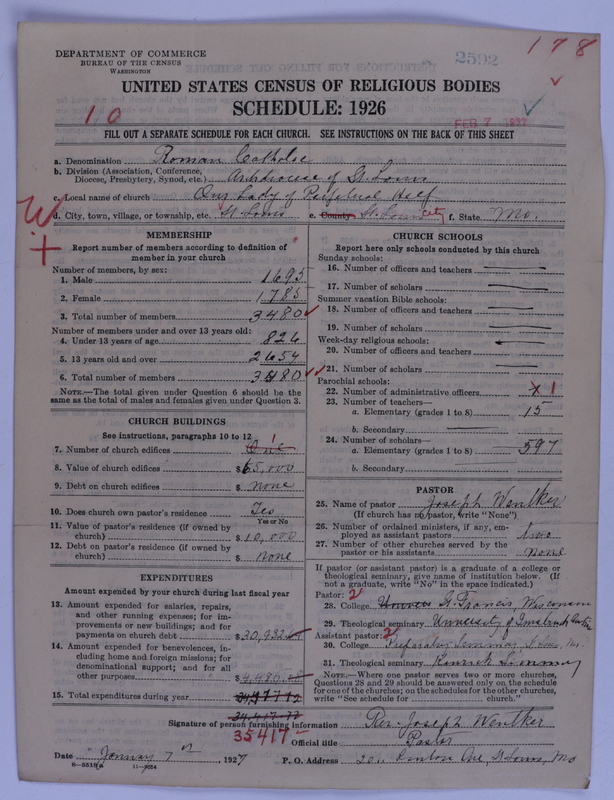 DEPARTMENT OF COMMERCE
BUREAU OF THE CENSUS
WASHINGTON
2592
178
UNITED STATES CENSUS OF RELIGIOUS BODIES
SCHEDULE: 1926
10
FEB 7 1927
FILL OUT A SEPARATE SCHEDULE FOR EACH CHURCH. SEE INSTRUCTIONS ON THE BACK OF THIS SHEET
a. Denomination Roman Catholic
b. Division (Association, Conference,
Diocese, Presbytery, Synod, etc.) of St. Louis
c. Local name of church Our Lady of Perpetual Help
d. City, town, village, or township, etc. St Louis e. County St. Louis City f. State Mo.
W
+
MEMBERSHIP
Report number of members according to definition of
member in your church
Number of members, by sex:
1. Male 1695
2. Female 1785
3. Total number of members 3480
Number of members under and over 13 years old:
4. Under 13 years of age 826
5. 13 years old and over 2654
6. Total number of members 3480
NOTE.—The total given under Question 6 should be
the same as the total of males and females given under Question 3.
CHURCH BUILDINGS
See instructions, paragraphs 10 to 12
7. Number of church edifices One 1
8. Value of church edifices $65,000
9. Debt on church edifices $ None
10. Does church own pastor's residence Yes
Yes or No
11. Value of pastor's residence (if owned by
church) $10,000
12. Debt on pastor's residence (if owned by
church) $ None
EXPENDITURES
Amount expended by your church during last fiscal year
13. Amount expended for salaries, repairs,
and other running expenses; for im-
provements or new building; and for
payments on church debt $30,932
14. Amount expended for benevolences, in-
cluding home and foreign missions; for
denominational support; and for all
other purposes 4,480
15. Total expenditures during year
35417
CHURCH SCHOOLS
Report here only schools conducted by this church
Sunday schools:
16. Number of officers and teachers
17. Number of scholars
Summer vacation Bible schools:
18. Number of officers and teachers
19. Number of scholars
Week-day religious schools:
20. Number of officers and teachers
21. Number of scholars
Parochial schools:
22. Number of administrative officers 1
23. Number of teachers—
a. Elementary (grades 1 to 8) 15
b. Secondary
24. Number of scholars—
a. Elementary (grades 1 to 8) 597
b. Secondary
PASTOR
25. Name of pastor Joseph Wentker
(If church has no pastor, write "None")
26. Number of ordained ministers, if any, em-
ployed as assistant pastors two
27. Number of other churches served by the
pastor or his assistants None
If pastor (or assistant pastor) is a graduate of a college or
theological seminary, give name of institution below. (If
not a graduate, write "No" in the space indicated.)
Pastor: 2
28. College St. Francis, Wisconsin
29. Theological seminary University of
Assistant pastor: 2
30. College Preparatory Seminary St. Louis, Mo.
31. Theological seminary Kenrick Seminary
NOTE.—Where one pastor serves two or more churches,
Questions 28 and 29 should be answered only on the schedule
for one of the churches; on the schedules for the other churches,
write "See schedule for church."
Signature of person furnishing information Rev. Joseph Wentker
Official title Pastor
Date January 7th, 1927 P. O. Address Ave, St Louis, Mo